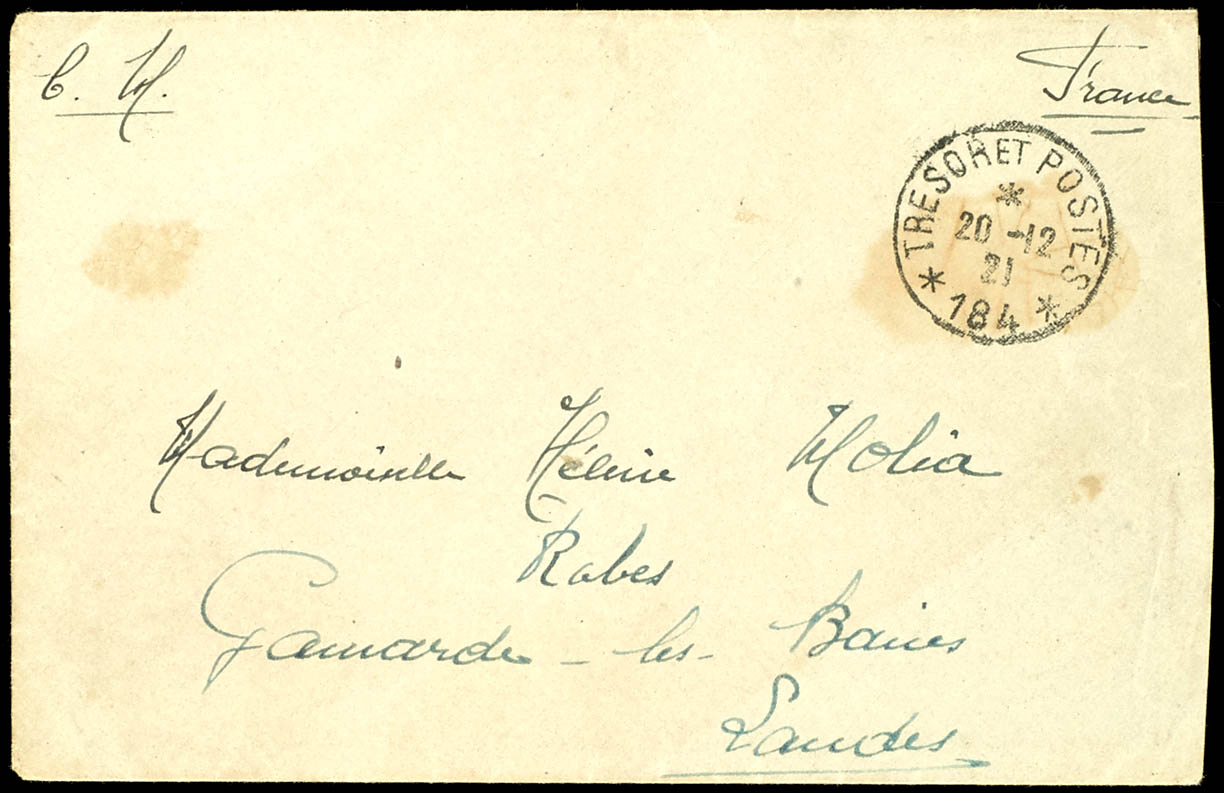 C. M.
France
TRESOR ET POSTES
*
20 -12
21
* 184 *
Mademoiselle Hélène Molia
Rabes
Gamarde - les - Bains
Landes